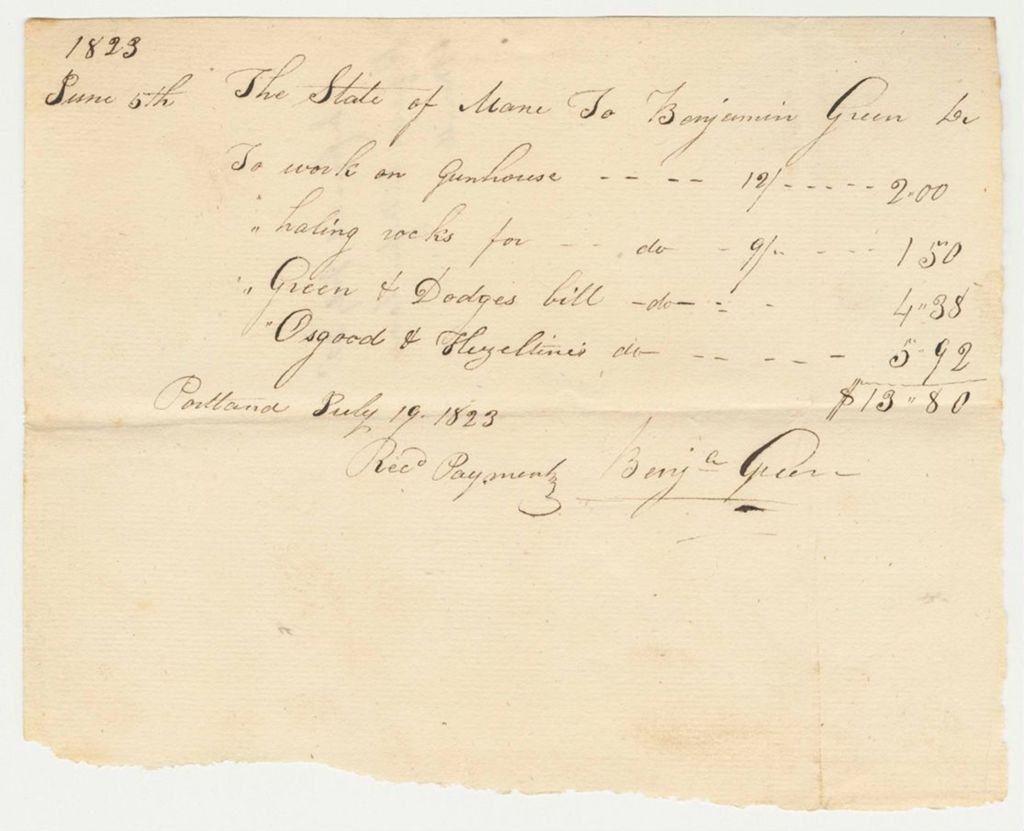 1823
June 5th The State of Mane To Benjamin Green Dr
To work on Gunhouse - - - - 12/ - - - - - 2"00
" haling rocks for - - do - 9/ - - - - - 1"50
" Green & Dodges bill - do - - - 4"38
" Osgood & Hezeltines do - - - - - - 5"92
$13"80
Portland July 19. 1823
Recd Payment Benja Green